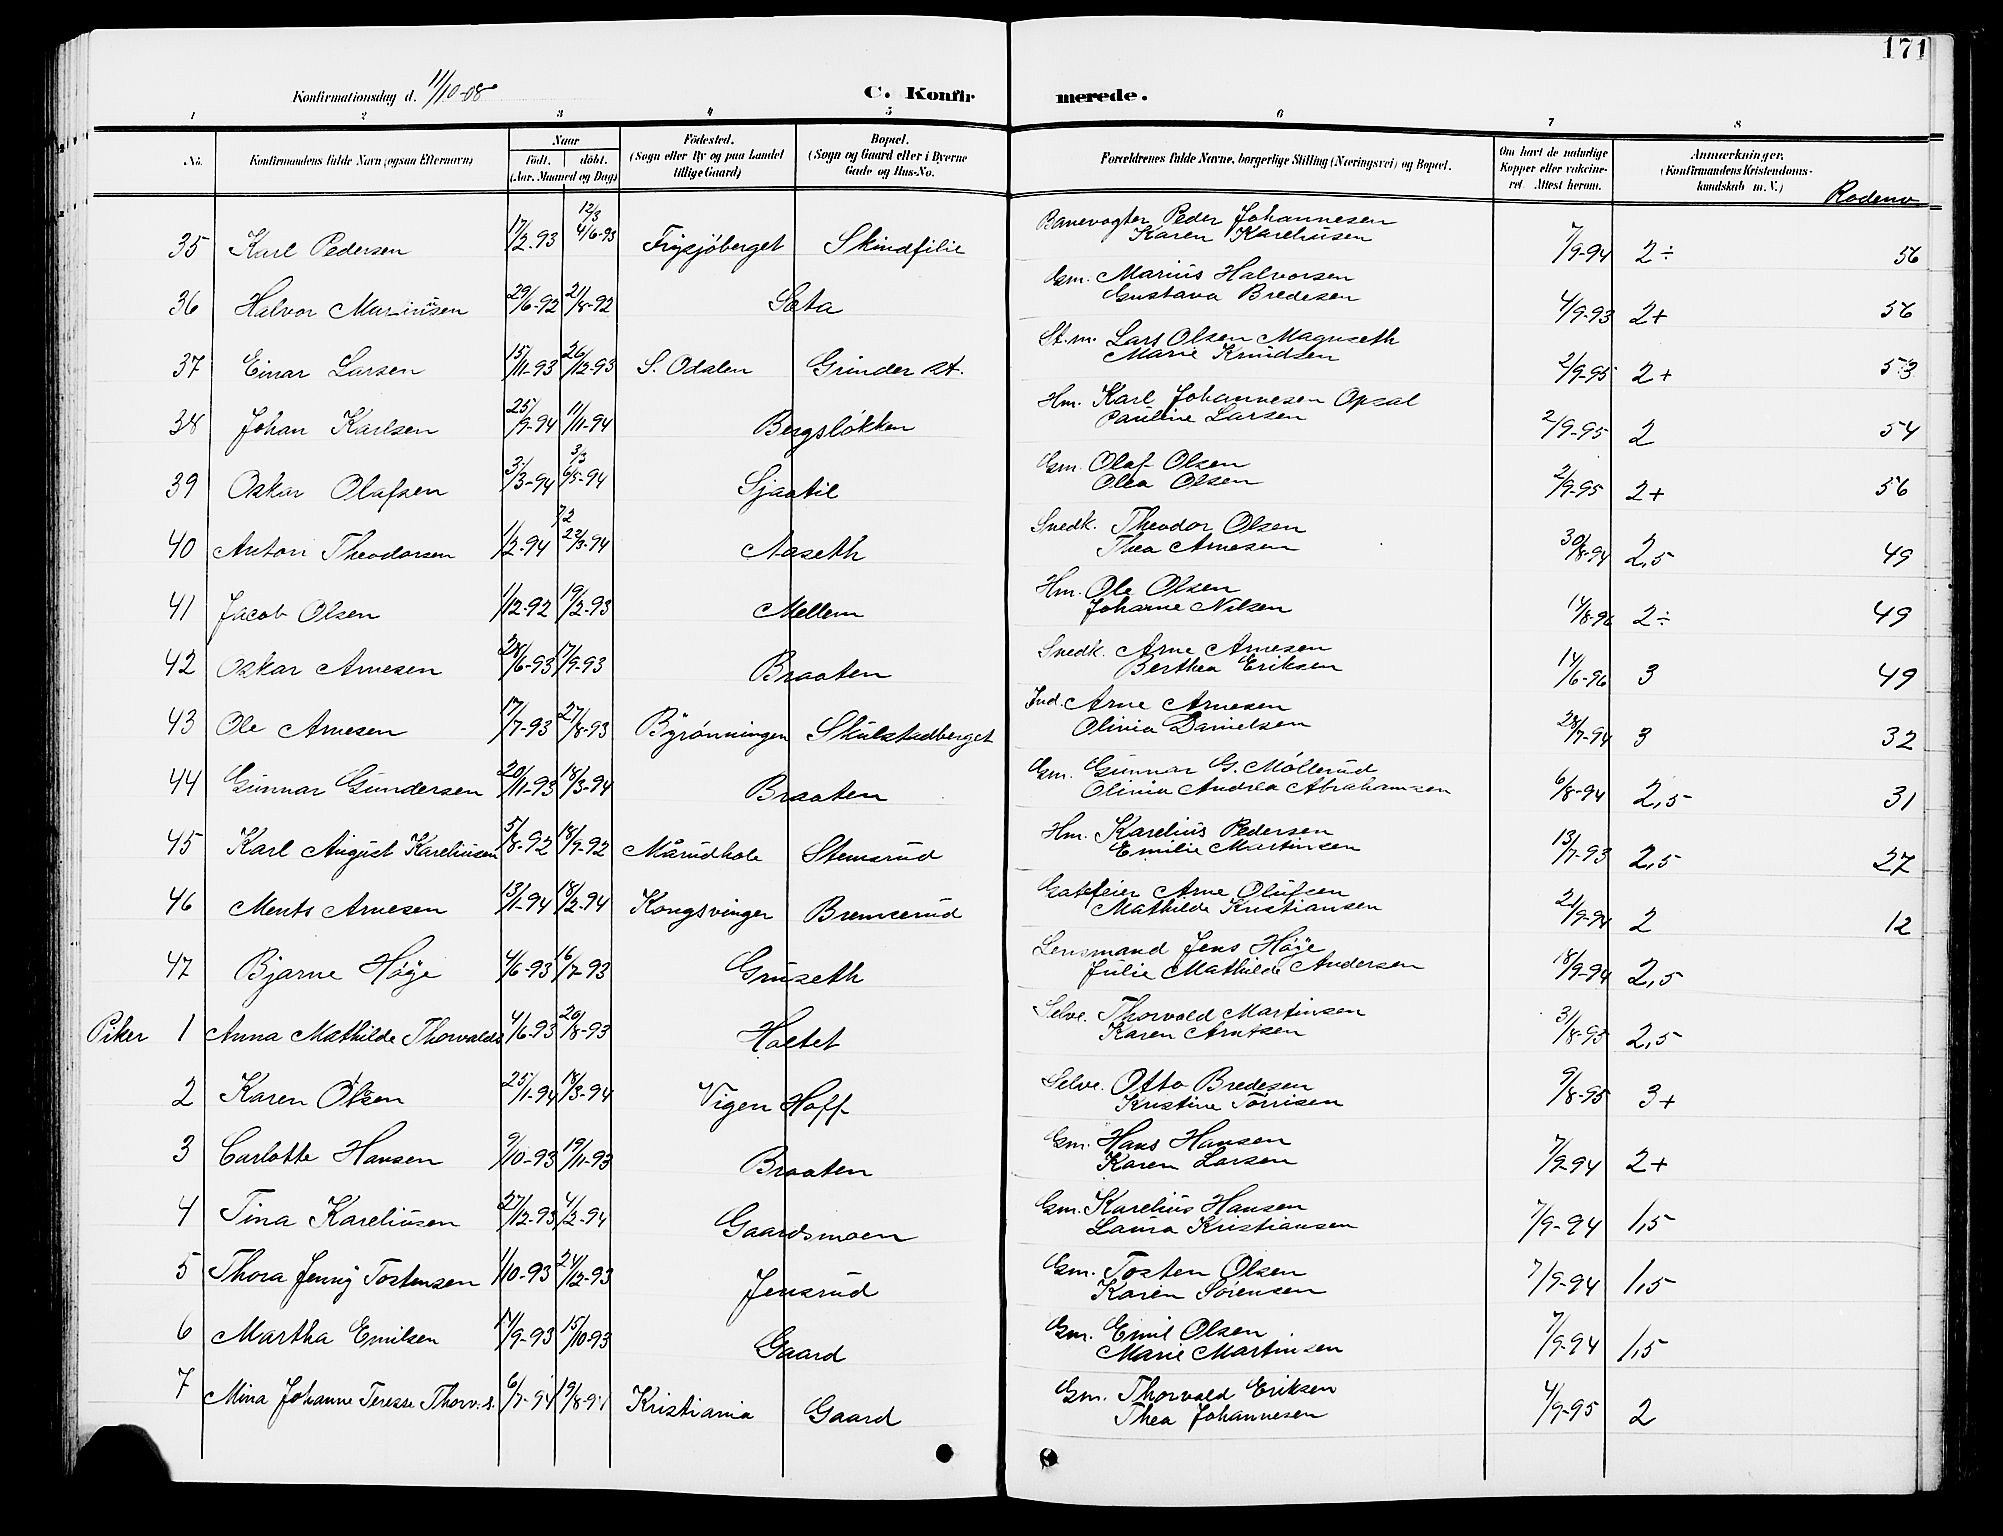 171
Konfirmationsdag d. 11/10-08
C. Konfirmerede.
1 2 3 4 5 6 7 8
No.
Konfirmandens fulde Navn (ogsaa Efternavn)
Naar
født. døbt.
(Aar, Maaned og Dag)
Fødested.
(Sogn eller By og paa Landet
tillige Gaard)
Bopæl.
(Sogn og Gaard eller i Byerne
Gade og Hus-No.
Forældrenes fulde Navne, borgerlige Stilling (Næringsvei) og Bopæl.
Om havt de naturlige
Kopper eller vakcine-
ret. Attest herom.
Anmærkninger.
(Konfirmandens Kristendoms-
kundskab m. V.)
Rodenо
35 Karl Pedersen 17/2-93 12/3 4/6-93 Frysjøberget Skindfilie Banevogter Peder Johannesen
Karen Kareliusen 7/9-94 2÷ 56
36 Halvor Mariusen 29/6-92 21/8-92 Sæta Gm. Marius Halvorsen
Gustava Bredesen 4/9-93 2+ 56
37 Einar Larsen 15/11-93 26/12-93 S. Odalen Grinder st. St.m. Lars Olsen Magnseth
Marie Knudsen 2/9-95 2+ 53
38 Johan Karlsen 25/9-94 11/11-94 Bergsløkken Hm. Karl Johannesen Opsal
Pauline Larsen 2/9-95 2 54
39 Oskar Olafsen 3/3-94 3/3 6/5-94 Sjaatil Gm. Olaf Olsen
Olea Olsen 2/9-95 2+ 56
40 Anton Theodorsen 1/2-94 7/2 22/3-94 Aaseth Snedk. Theodor Olsen
Thea Arnesen 30/8-94 2,5 49
41 Jacob Olsen 1/12-92 19/2-93 Mellem Hm. Ole Olsen
Johanne Nilsen 14/8-96 2÷ 49
42 Oskar Arnesen 28/6-93 17/9-93 Braaten Snedk. Arne Arnesen
Berthea Eriksen 14/6-96 3 49
43 Ole Arnesen 17/7-93 27/8-93 Byrønningen Skulstadberget Ind. Arne Arnesen
Olivia Danielsen 28/7-94 3 32
44 Gunnar Gundersen 20/11-93 18/3-94 Braaten Gm. Gunnar G. Møllerud
Olivia Andrea Abrahamsen 6/8-94 2,5 31
45 Karl August Kareliusen 5/8-92 18/9-92 Mårudhole Stemsrud Hm. Karelius Pedersen
Emilie Martinsen 13/7-93 2,5 27
46 Ments Arnesen 13/1-94 18/2-94 Kongsvinger Bremserud Gatefeier Arne Olufsen
Mathilde Kristiansen 21/9-94 2 12
47 Bjarne Høye 4/6-93 16/7-93 Gruseth Lensmand Jens Høye
Julie Mathilde Andersen 18/9-94 2,5
Piker 1 Anna Mathilde Thorvalds 4/6-93 20/8-93 Holtet Selve. Thorvald Martinsen
Karen Arntsen 31/8-95 2,5
2 Karen Olsen 25/1-94 18/3-94 Vigen Hoff Selve. Otto Bredesen
Kristine Torrisen 9/8-95 3+
3 Carlotte Hansen 9/10-93 19/11-93 Braaten Gm. Hans Hansen
Karen Larsen 7/9-94 2+
4 Tina Kareliusen 27/12-93 4/2-94 Gaardsmoen Gm. Karelius Hansen
Laura Kristiansen 7/9-94 1,5
5 Thora Jenny Tostensen 1/10-93 24/12-93 Jensrud Gm. Tosten Olsen
Karen Sørensen 7/9-94 1,5
6 Martha Emilsen 14/9-93 15/10-93 Gaard Gm. Emil Olsen
Marie Martinsen 7/9-94 1,5
7 Mina Johanne Teresse Thorv.s. 6/7-94 19/8-94 Kristiania Gaard Gm. Thorvald Eriksen
Thea Johannesen 4/9-95 2